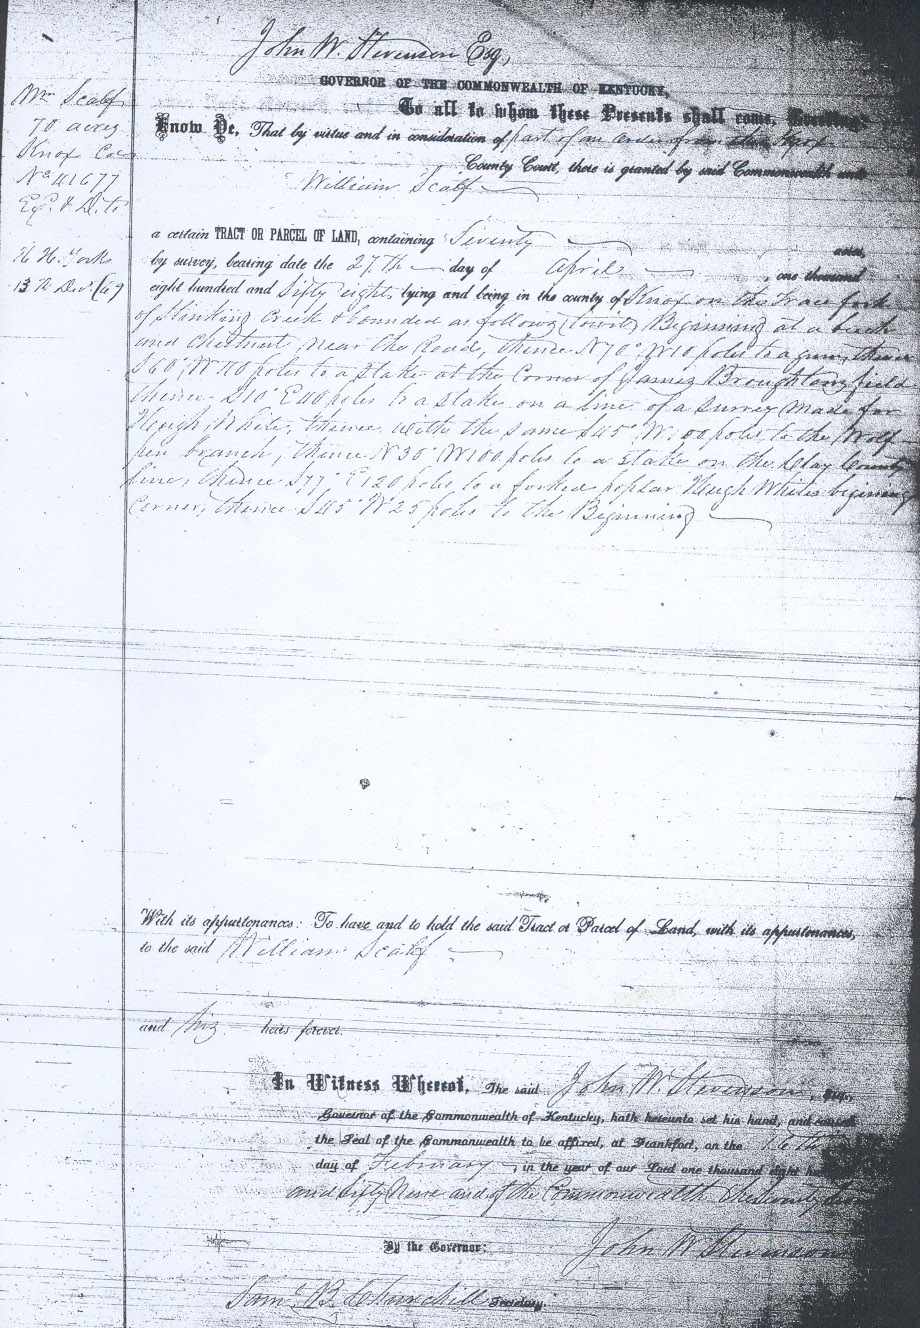 John W. Stevenson Esq,
GOVERNOR OF THE COMMONWEALTH OF KENTUCKY,
To all to whom these Presents shall come, Greeting:
Know Ye, That by virtue and in consideration of part of an order from the Knox
County Court, there is granted by said Commonwealth unto
William Scalf
a certain TRACT OR PARCEL OF LAND, containing Seventy acres,
by survey, bearing date the 27th day of April, one thousand
eight hundred and fifty eight, lying and being in the county of Knox on the Trace fork
of Stinking Creek & bounded as follows (towit) Beginning at a beech
and Chestnut, near the Road, thence N70° W10 poles to a gum, thence
S60° W 110 poles to a stake at the Corner of James Broughtons field
thence S10° E40 poles to a stake on a line of a survey made for
Heugh White, thence with the same S45° W. poles to the Wolf
pen branch, thence N30° W100 poles to a stake on the Clay County
line, thence S77° E120 poles to a forked poplar Heugh Whites beginning
Corner, thence S45° W25 poles to the Beginning
With its appurtenances: To have and to hold the said Tract or Parcel of Land, with its appurtenances,
to the said William Scalf
and his heirs forever.
In Witness Whereof, The said John W. Stevenson, Esq.,
Governor of the Commonwealth of Kentucky, hath hereunto set his hand, and caused
the Seal of the Commonwealth to be affixed, at Frankfort, on the 16th
day of February, in the year of our Lord one thousand eight
and sixty Nine and of the Commonwealth the Seventy
By the Governor: John W Stevenson
Saml B. Churchill Secretary.
Wm Scalf
70 acres
Knox Co
No 41677
Exd. & D. to
H. H. York
13th /69